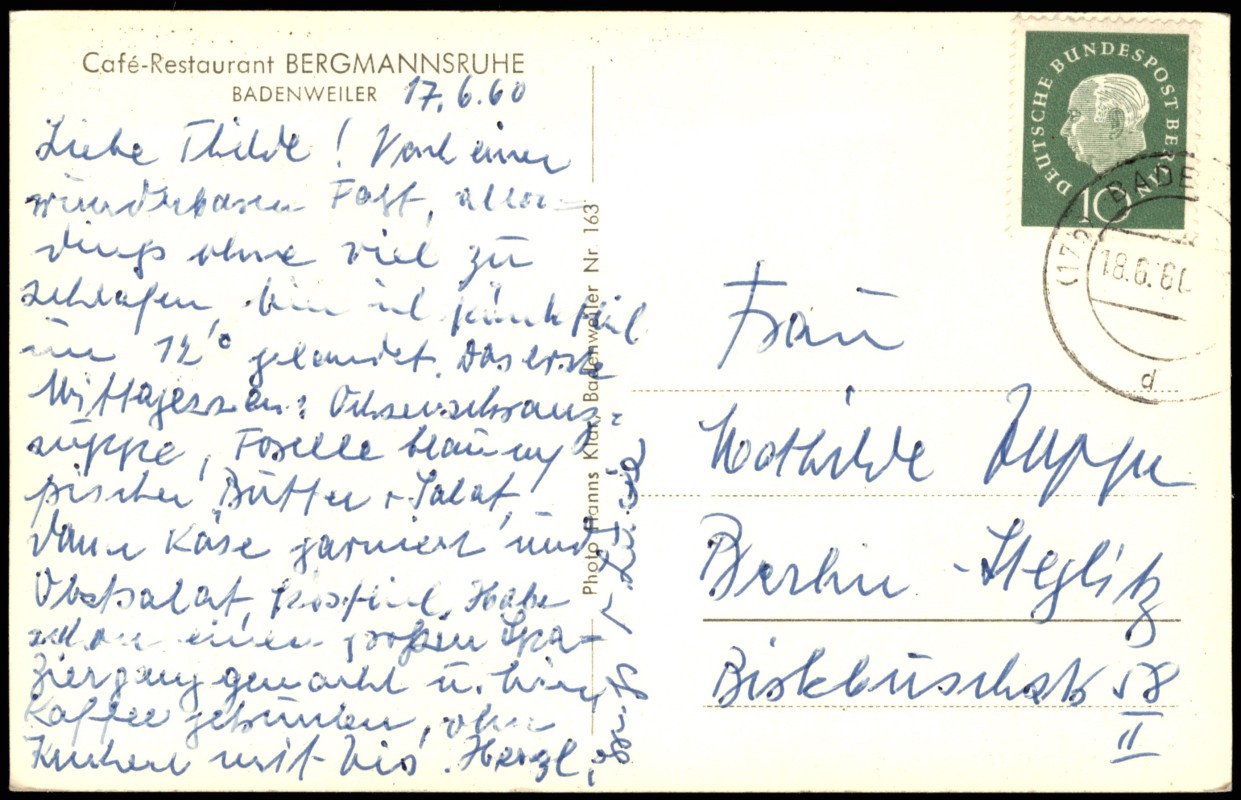 Café-Restaurant BERGMANNSRUHE
BADENWEILER 17.6.60
Liebe Thilde! Nach einer
wunderbaren Fahrt, aller-
dings ohne viel zu
schlafen, bin ich pünktlich
um 12° gelandet. Das erste
Mittagessen: Ochsenschwanz-
suppe, Forelle blau m
frischer Butter + Salat,
dann Käse garniert und
Obstsalat, köstlich. Habe
schon einen großen Spa-
ziergang gemacht u. hier
Kaffee getrunken, ohne
Kuchen mit bis. Herzl.
Photo Hanns Klar, Badenweiler Nr. 163
DEUTSCHE BUNDESPOST BERLIN
10
(17
BADE
18.6.60
d
Frau
Mathilde
Berlin-Steglitz
58
II